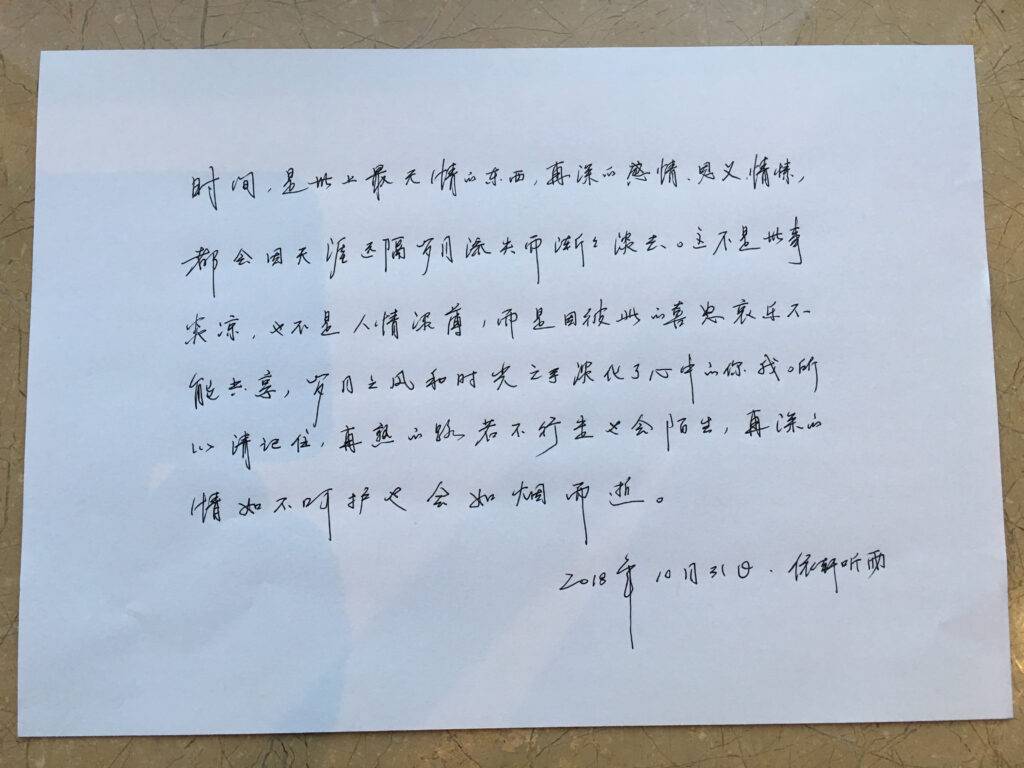 时间，是世上最无情的东西，再深的感情、恩义、情愫，
都会因天涯远隔岁月流失而渐々淡去。这不是世事
炎凉，也不是人情浓薄，而是因彼此的喜忿哀乐不
能共享，岁月之风和时光之手淡化了心中的你我。所
以请记住，再熟的路若不行走也会陌生，再深的
情如不呵护也会如烟而逝。
2018年10月31日．依轩听雨